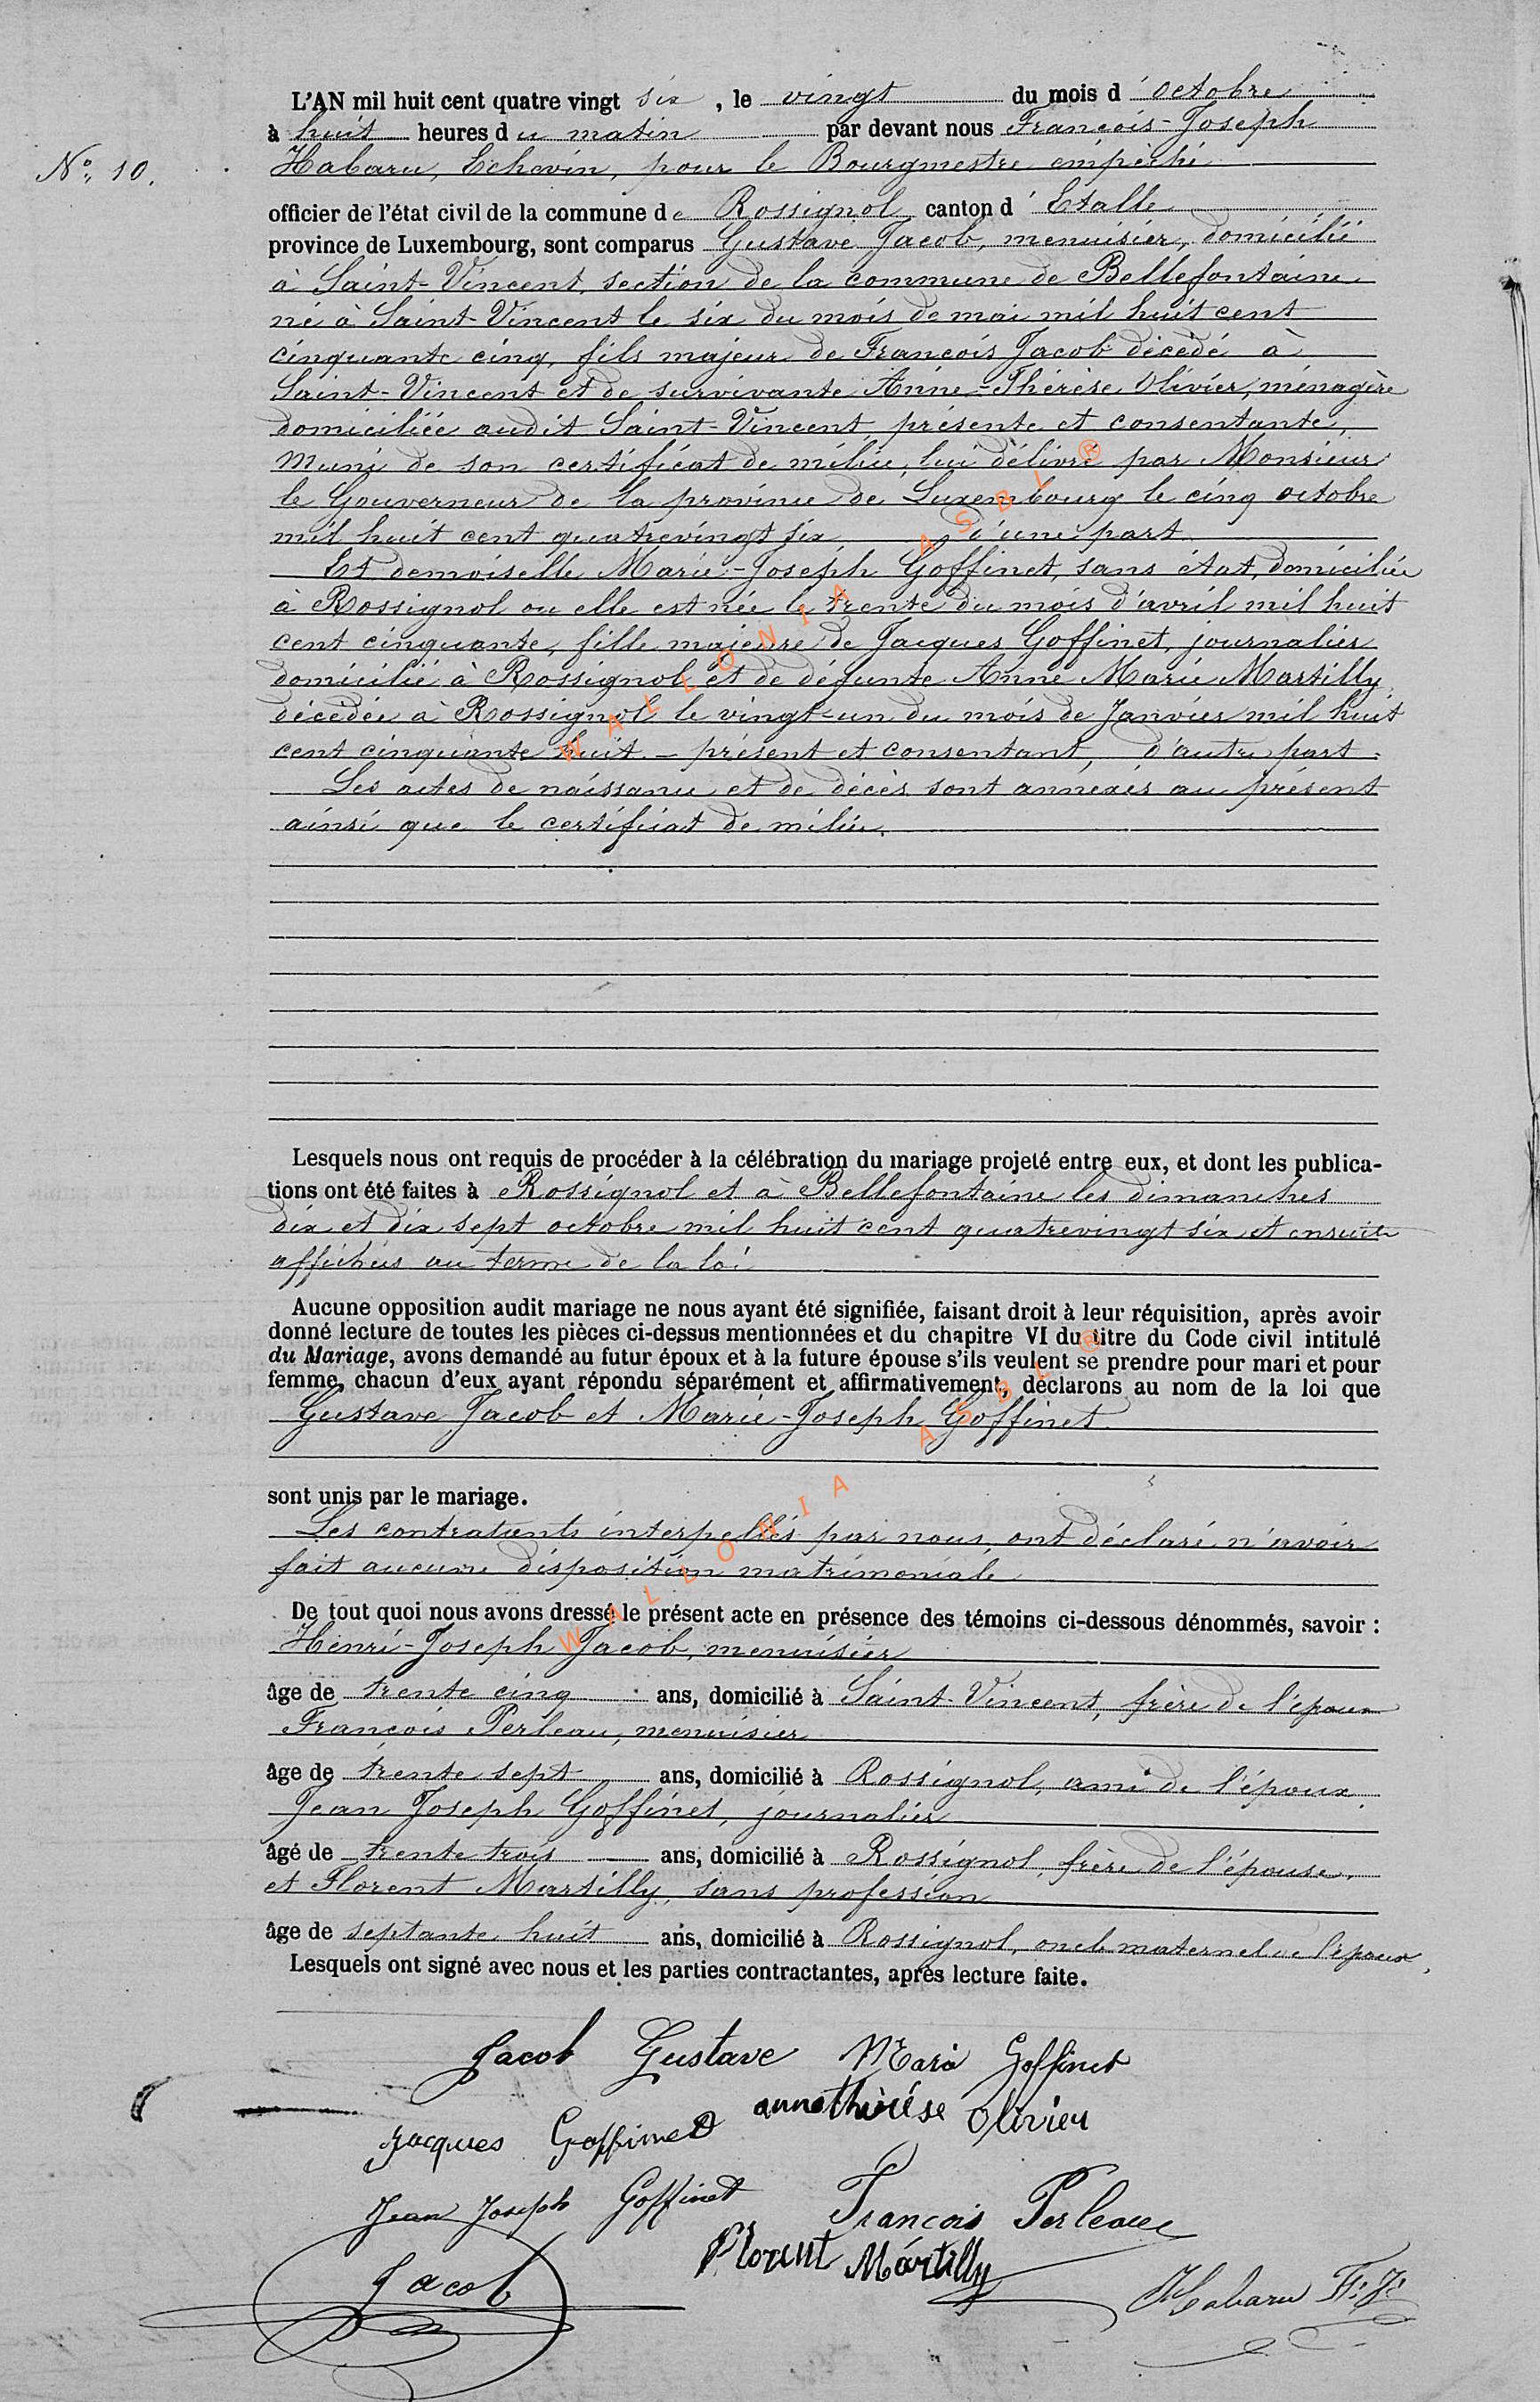 L'AN mil huit cent quatre vingt six, le vingt du mois d'octobre
à huit heures du matin par devant nous François-Joseph
N° 10. Habaru, Echevin, pour le Bourgmestre empêché
officier de l'état civil de la commune de Rossignol canton d'Etalle
province de Luxembourg, sont comparus Gustave Jacob, menuisier, domicilié
à Saint-Vincent, section de la commune de Bellefontaine
né à Saint-Vincent le six du mois de mai mil huit cent
cinquante cinq, fils majeur de François Jacob décédé à
Saint-Vincent et de survivante Anne-Thérèse Olivier, ménagère
domiciliée audit Saint-Vincent présente et consentante,
muni de son certificat de milice, lui délivré par Monsieur
le Gouverneur de la province de Luxembourg le cinq octobre
mil huit cent quatrevingt six d'une part
Et demoiselle Marie-Joseph Goffinet, sans état, domiciliée
à Rossignol ou elle est née le trente du mois d'avril mil huit
cent cinquante, fille majeure de Jacques Goffinet, journalier
domicilié à Rossignol et de défunte Anne Marie Martilly,
décédée à Rossignol le vingt-un du mois de Janvier mil huit
cent cinquante huit — présent et consentant, d'autre part.
Les actes de naissance et de décès sont annexés au présent
ainsi que le certificat de milice.
Lesquels nous ont requis de procéder à la célébration du mariage projeté entre eux, et dont les publica-
tions ont été faites à Rossignol et à Bellefontaine les dimanches
dix et dix sept octobre mil huit cent quatrevingt six et ensuite
affichées au terme de la loi
Aucune opposition audit mariage ne nous ayant été signifiée, faisant droit à leur réquisition, après avoir
donné lecture de toutes les pièces ci-dessus mentionnées et du chapitre VI du titre du Code civil intitulé
du Mariage, avons demandé au futur époux et à la future épouse s'ils veulent se prendre pour mari et pour
femme, chacun d'eux ayant répondu séparément et affirmativement, déclarons au nom de la loi que
Gustave Jacob et Marie-Joseph Goffinet
sont unis par le mariage.
Les contractants interpellés par nous, ont déclaré n'avoir
fait aucune disposition matrimoniale
De tout quoi nous avons dressé le présent acte en présence des témoins ci-dessous dénommés, savoir :
Henri-Joseph Jacob, menuisier
âge de trente cinq ans, domicilié à Saint-Vincent, frère de l'époux
François Perleau, menuisier
âge de trente sept ans, domicilié à Rossignol, ami de l'époux,
Jean Joseph Goffinet, journalier
âgé de trente trois ans, domicilié à Rossignol, frère de l'épouse,
et Florent Martilly, sans profession
âge de septante huit ans, domicilié à Rossignol, oncle maternel de l'époux,
Lesquels ont signé avec nous et les parties contractantes, après lecture faite.
Jacob Gustave Maria Goffinet
Jacques Goffinet annethérése Olivier
Jean Joseph Goffinet François Perleau
Jacob Florent Martilly Habaru F: J:
WALLONIA ASBL ®
WALLONIA ASBL ®